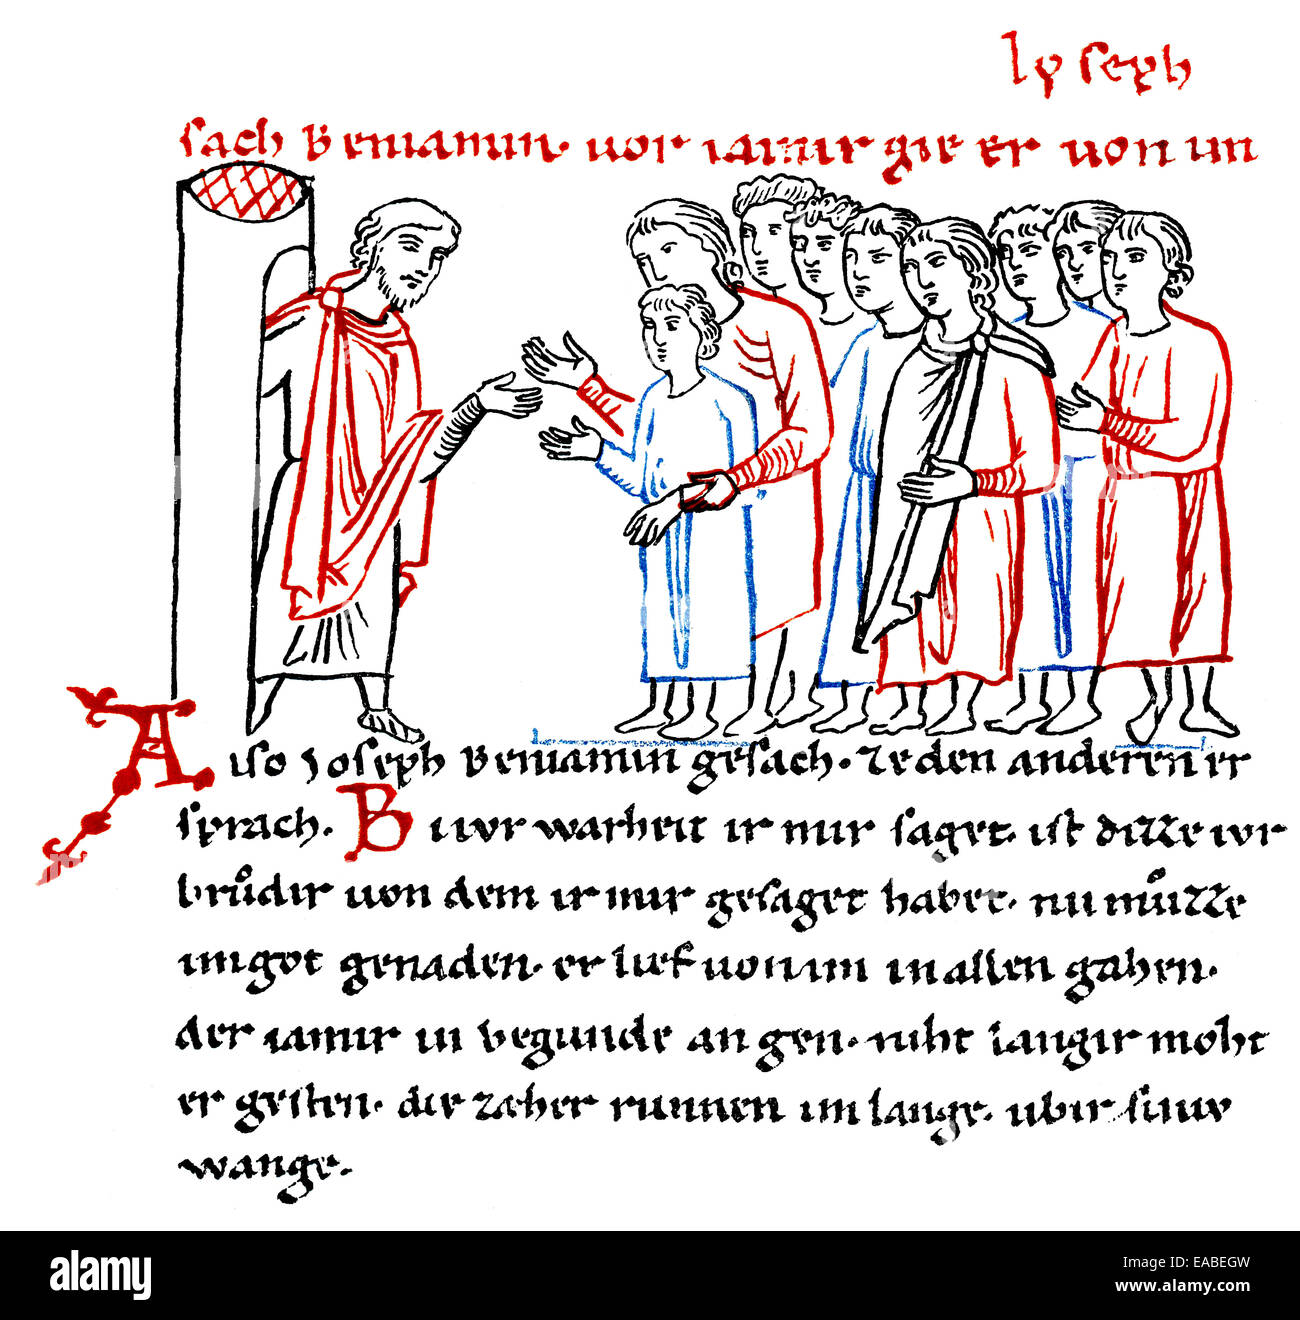 Ioseph
sach Beniamin. vor iamir gie er von im
Also Joseph Beniamin gesach. ze den anderen er
sprach. Bi iwr warheit ir mir saget. ist dizze iwr
brůdir von dem ir mir gesaget habet. nu můzze
im got genaden. er lief von im in allen gahen.
der iamir in begunde an gen. niht langir moht
er gesten. die zæher runnen im lange. ubir siniv
wange.
alamy
Image ID: EABEGW
www.alamy.com